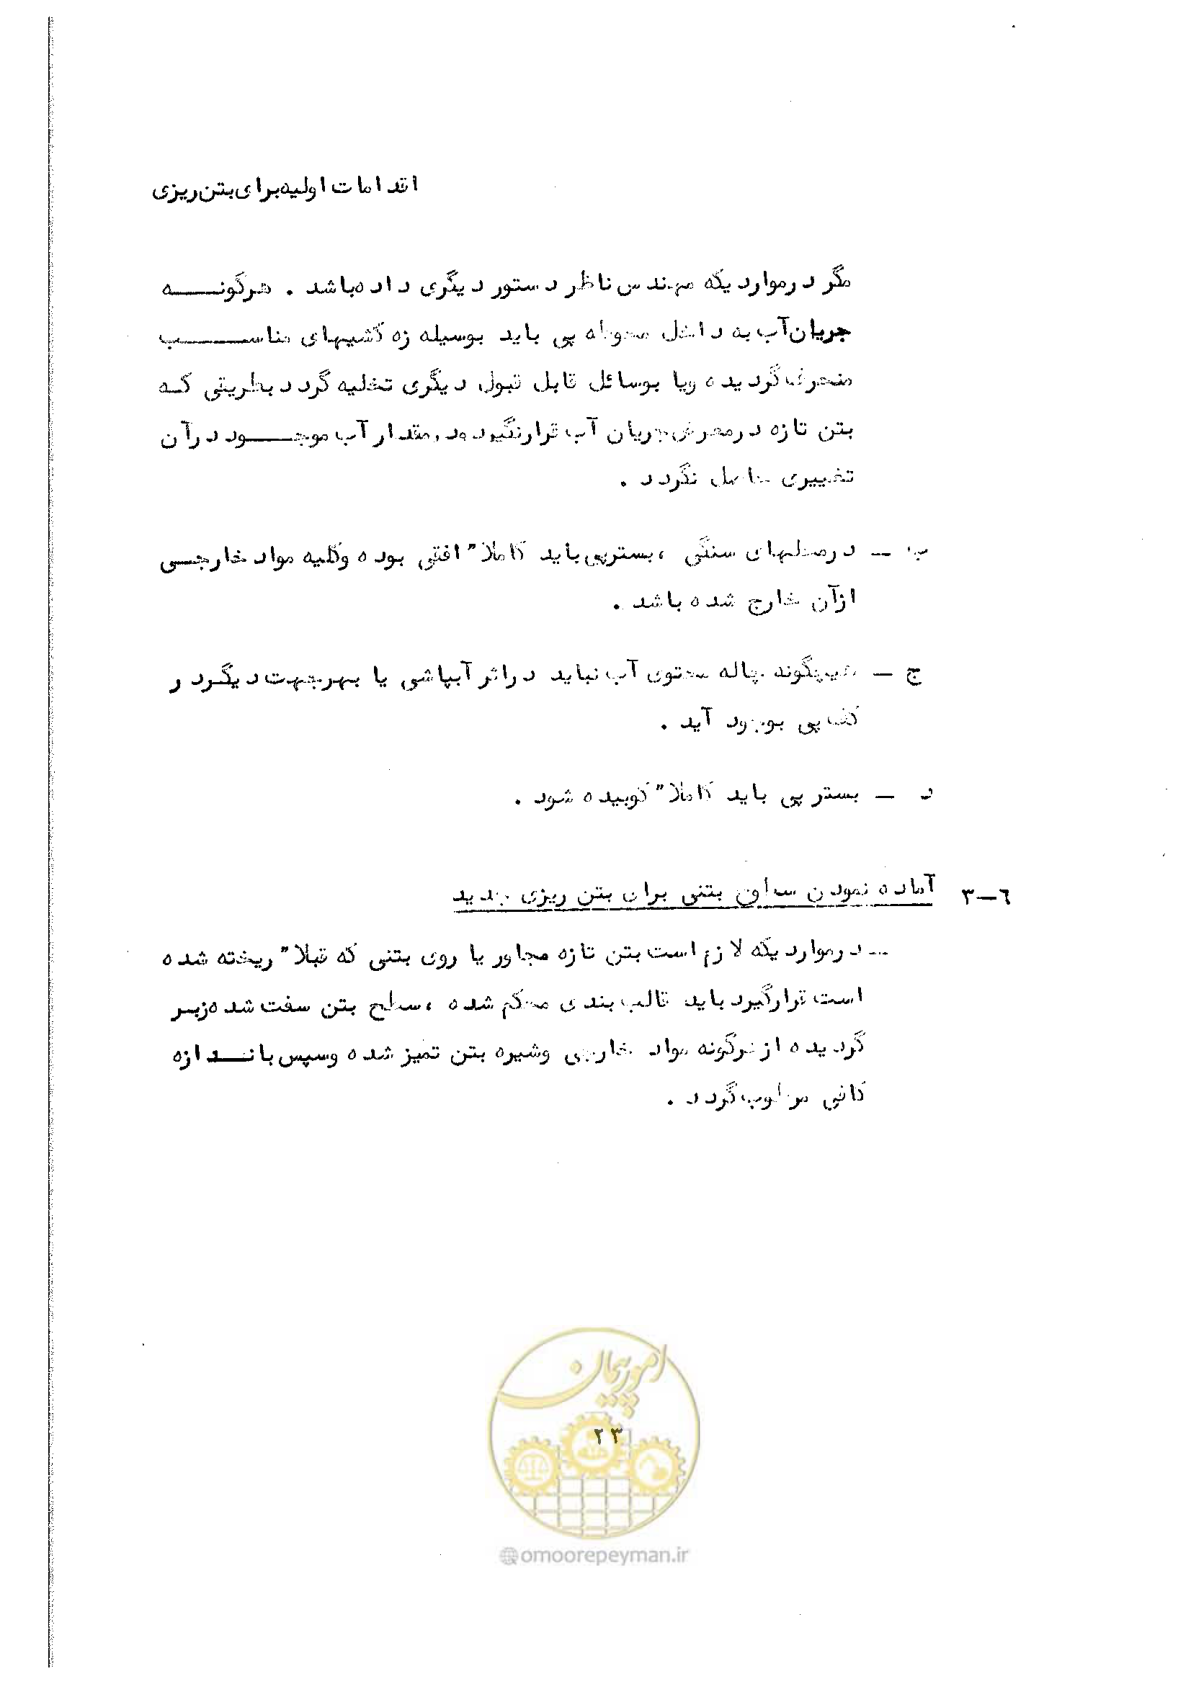 اقدامات اولیه برای بتن ریزی
مگر در مواردیکه مهندس ناظر دستور دیگری داده باشد . هرگونه
جریان آب به داخل محوطه پی باید بوسیله زه کشیهای مناسب
منحرف گردیده ویا بوسائل قابل قبول دیگری تخلیه گردد بطریقی که
بتن تازه در معرض جریان آب قرارنگیرد و مقدار آب موجود درآن
تغییری حاصل نگردد .
ب ـ درمحلهای سنگی ، بسترپی باید کاملا" افقی بوده وکلیه مواد خارجی
ازآن خارج شده باشد .
ج ـ هیچگونه چاله محتوی آب نباید دراثر آبپاشی یا بهرجهت دیگر در
کف پی بوجود آید .
د ـ بستر پی باید کاملا" کوبیده شود .
۳-۶ آماده نمودن سطوح بتنی برای بتن ریزی جدید
ـ در مواردیکه لازم است بتن تازه مجاور یا روی بتنی که قبلا" ریخته شده
است قرارگیرد باید قالب بندی محکم شده ، سطح بتن سفت شده زبر
گردیده از هرگونه مواد خارجی وشیره بتن تمیز شده وسپس باندازه
کافی مرطوب گردد .
امور پیمان
۲۳
@omoorepeyman.ir